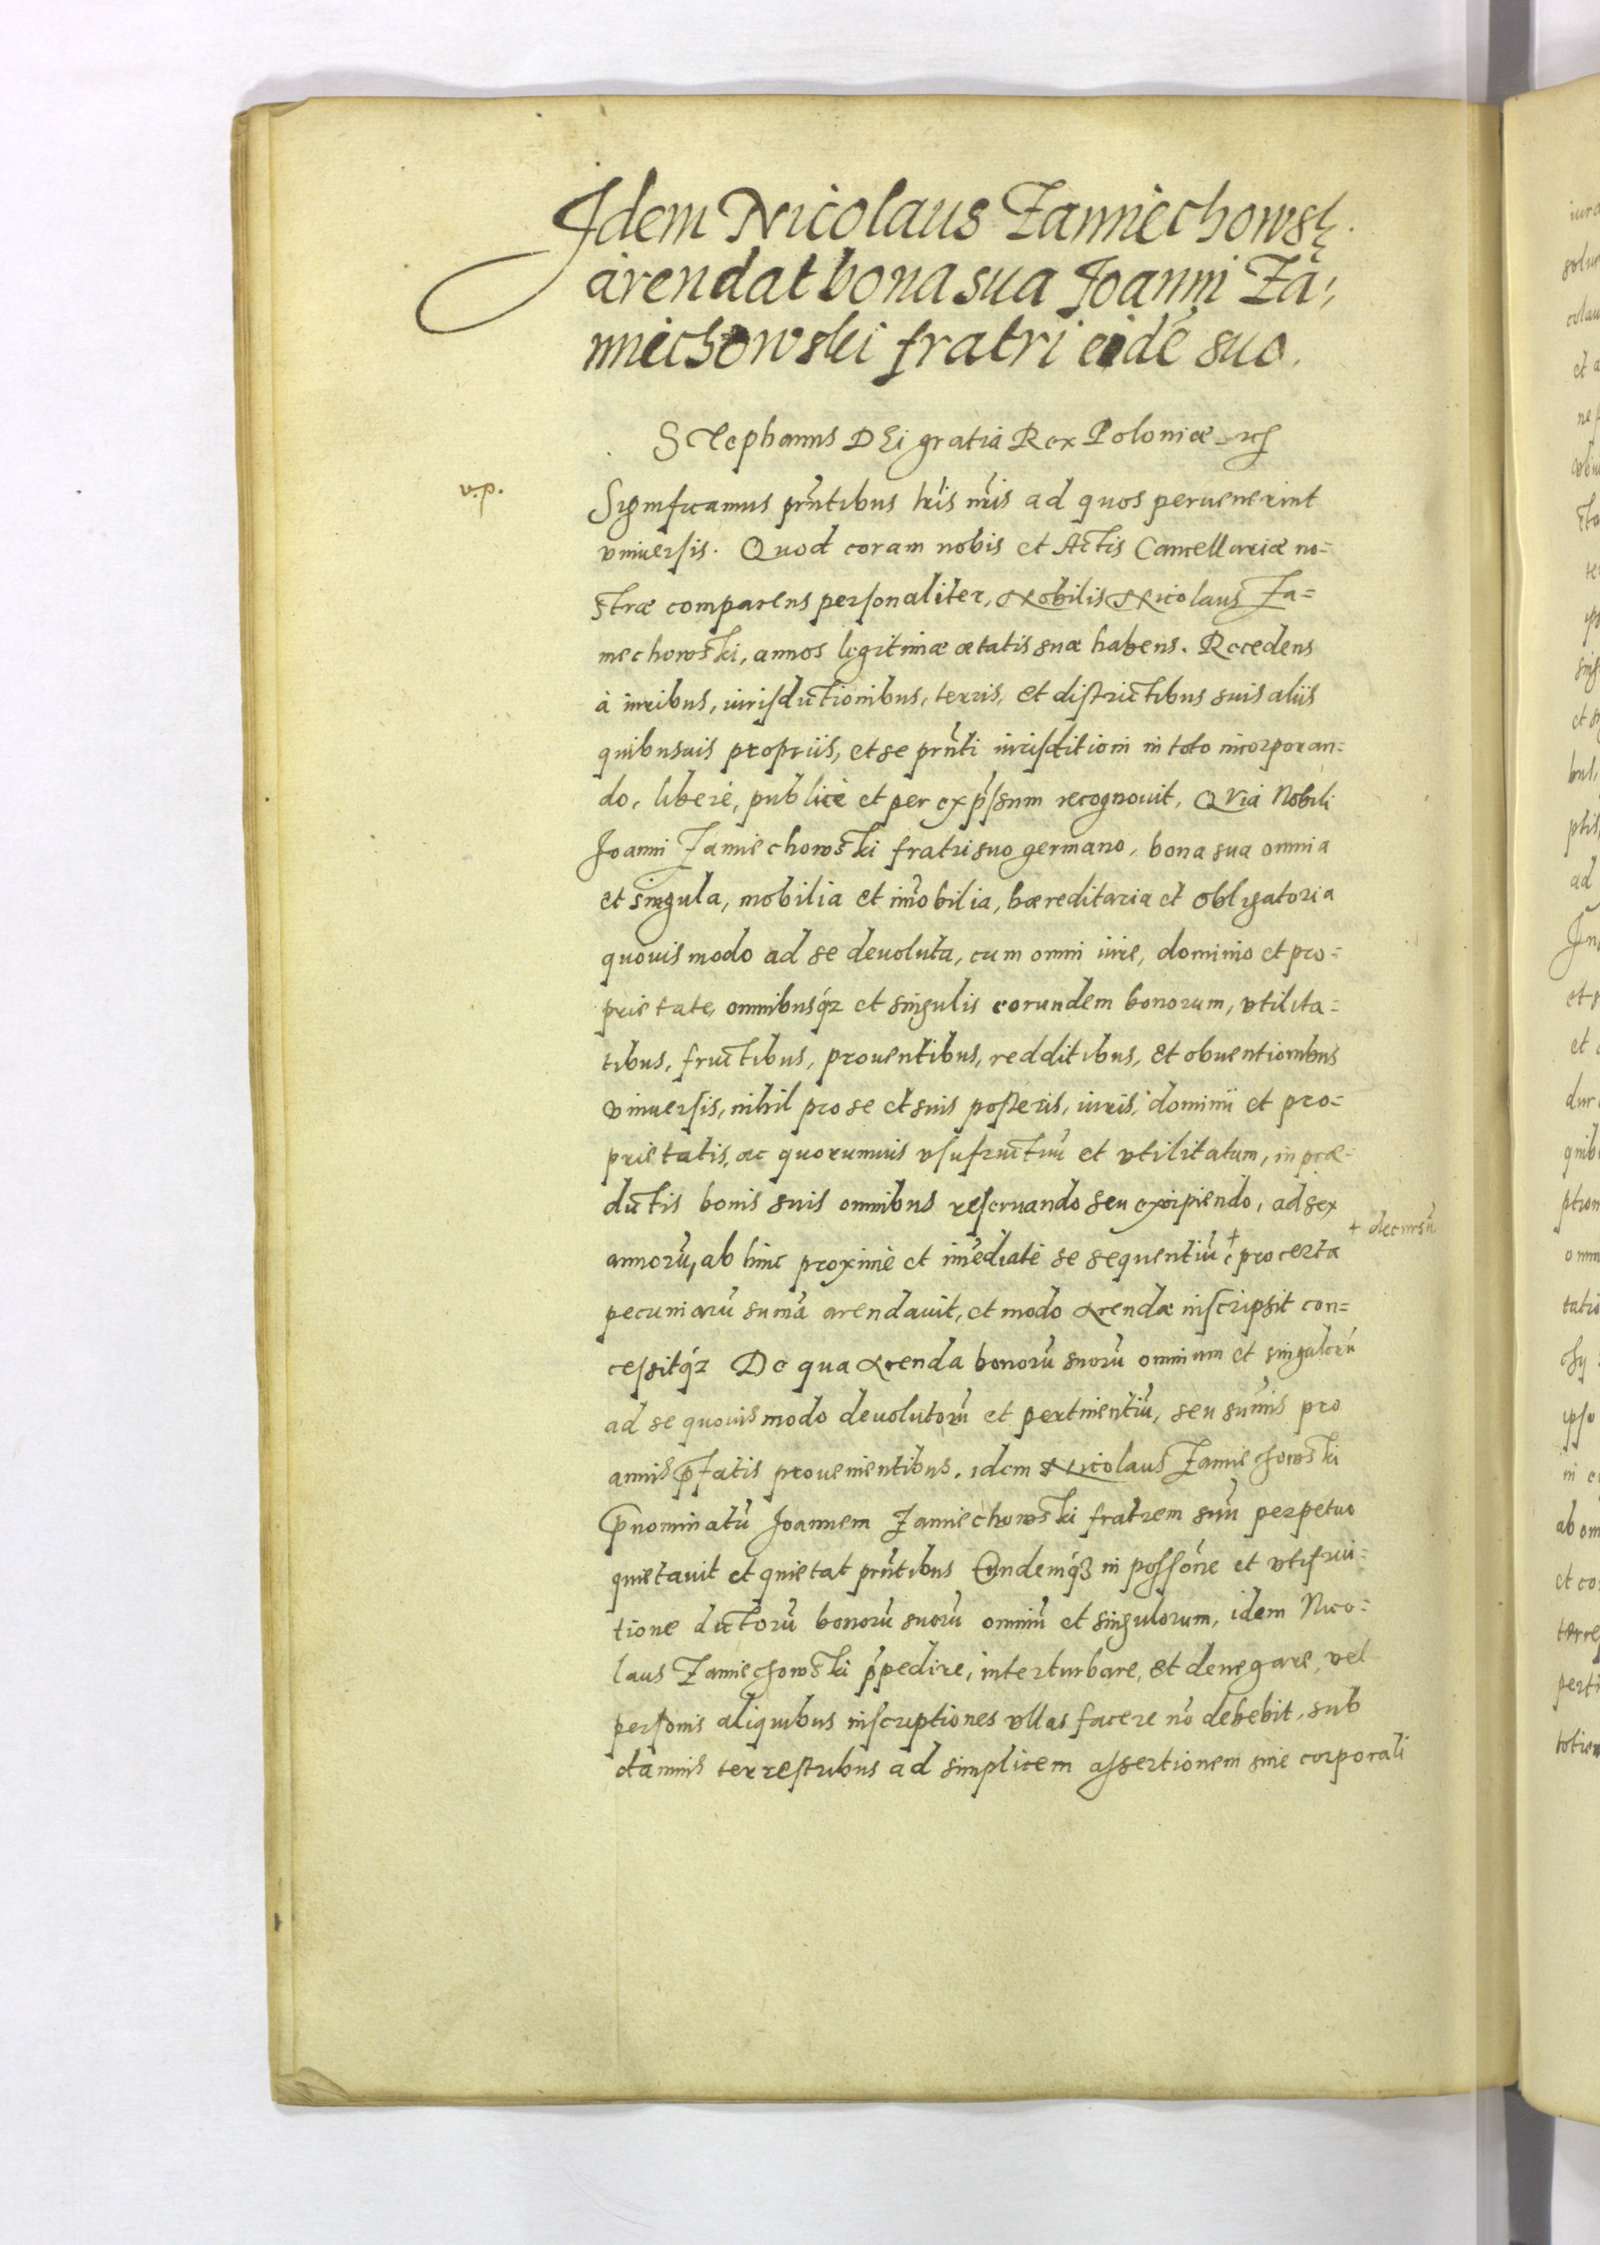 Idem Nicolaus Zamiechowsk.
arendat bona sua Joanni Za;
miechowski fratri eidē suo.
Stephanus DEi gratia Rex Poloniæ
v.p.
Significamus pn̄tibus lr̄is nr̄is ad quos peruenerint
vniuersis. Quod coram nobis et Actis Cancellariæ no=
stræ comparens personaliter, Nobilis Nicolaus Za=
mechowski, annos legitimæ ætatis suæ habens. Recedens
à iuribus, iurisdictionibus, terris, et districtibus suis aliis
quibusuis propriis, et se pn̄ti iurisditioni in toto incorporan=
do, liberè, publicè et per exp̄ssum recognouit, Quia Nobili
Joanni Zamiechowski fratri suo germano, bona sua omnia
et singula, mobilia et im̄obilia, hæreditaria et obligatoria
quouis modo ad se deuoluta, cum omni iure, dominio et pro=
prietate, omnibusq́ȝ et singulis eorundem bonorum, vtilita=
tibus, fructibus, prouentibus, redditibus, et obuentionibus
vniuersis, nihil pro se et suis posteris, iuris, dominii et pro=
prietatis, ac quorumuis vsufructuū et vtilitatum, in præ=
dictis bonis suis omnibus reseruando seu excipiendo, ad sex
annorū, ab hinc proximè et im̄ediatè se sequentiū + pro certa
+ decursū
pecuniarū sum̄a arendauit, et modo Arendæ inscripsit con=
cessitq́ȝ De qua Arenda bonorū suorū omnium et singulorū
ad se quouis modo deuolutorū et pertinentiū, seu sum̄is pro
annis p̄fatis prouenientibus, idem Nicolaus Zamiechowski
P̄nominatū Joannem Zamiechowski fratrem suū perpetuo
quietauit et quietat pn̄tibus Eundemq́ȝ in possōne et vtifrui=
tione dictorū bonorū suorū omniū et singulorum, idem Nico=
laus Zamiechowski p̄pedire, interturbare, et denegare, vel
personis aliquibus inscriptiones vllas facere nō debebit, sub
damnis terrestribus ad simplicem assertionem sine corporali